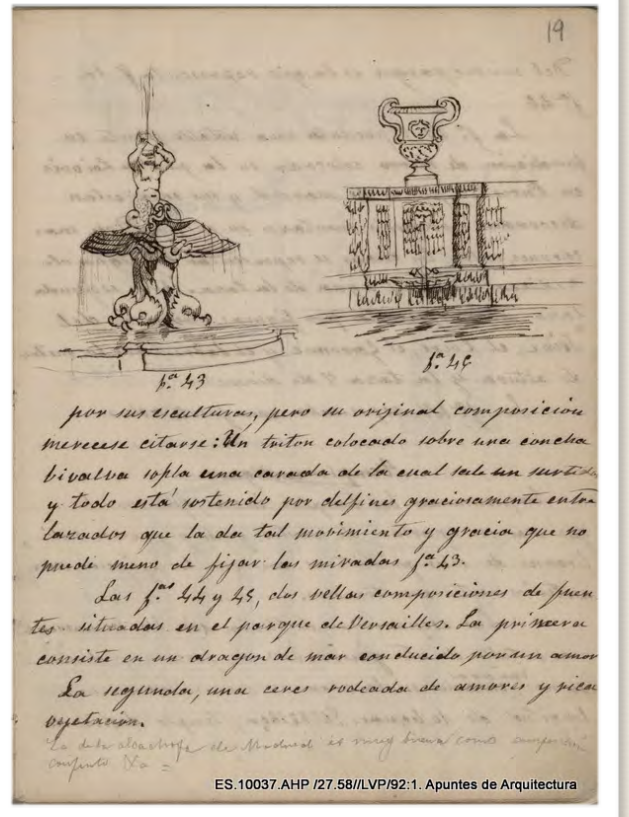 19
f.ª 43
f.ª 45
por sus esculturas, pero su original composición
merecese citarse: Un triton colocado sobre una concha
bivalva sopla una carada de la cual sale un surtido
y todo está sostenido por delfines graciosamente entre
lazados que la da tal movimiento y gracia que no
puede meno de fijar las miradas f.ª 43.
Las f.ªˢ 44 y 45, dos vellas composiciones de fuen
tes situadas en el parque de Versailles. La primera
consiste en un dragon de mar conducido por un amor
La segunda, una ceres rodeada de amores y rica
vejetación.
La de la alcachofa de Madrid es muy buena como composición
conjunto
ES.10037.AHP /27.58//LVP/92:1. Apuntes de Arquitectura